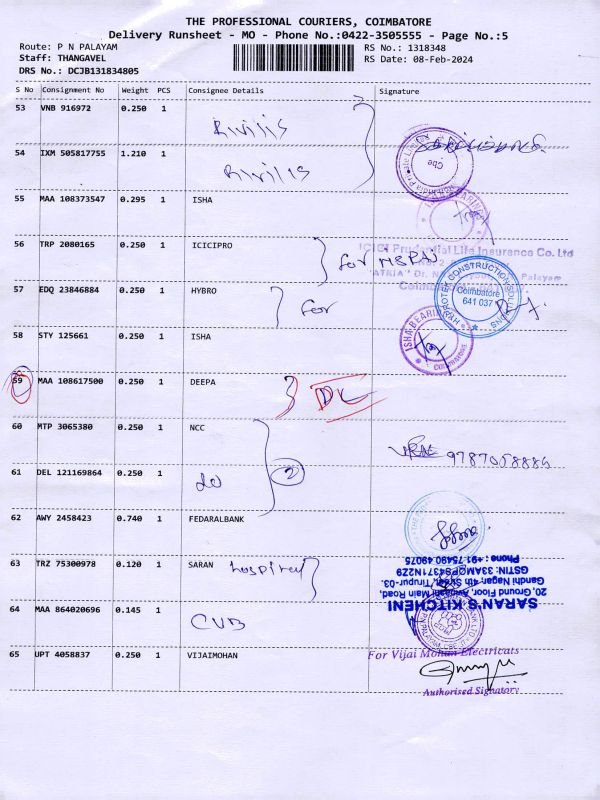 THE PROFESSIONAL COURIERS, COIMBATORE
Delivery Runsheet - MO - Phone No.:0422-3505555 - Page No.:5
Route: P N PALAYAM
RS No.: 1318348
Staff: THANGAVEL
RS Date: 08-Feb-2024
DRS No.: DCJB131834805
S No Consignment No Weight PCS Consignee Details Signature
53 VNB 916972 0.250 1 Rivilis
54 IXM 505817755 1.210 1 Rivilis
Cbe
55 MAA 108373547 0.295 1 ISHA
56 TRP 2080165 0.250 1 ICICIPRO for
ICICI Prudential Life Insurance Co. Ltd
57 EDQ 23846884 0.250 1 HYBRO for
Coimbatore
641 037
58 STY 125661 0.250 1 ISHA
ISHA BEARING
COIMBATORE
59 MAA 108617500 0.250 1 DEEPA DL
60 MTP 3065380 0.250 1 NCC
2
61 DEL 121169864 0.250 1 do
62 AWY 2458423 0.740 1 FEDARALBANK
63 TRZ 75300978 0.120 1 SARAN hospital
SARAN'S KITCHENI
20, Ground Floor, Avinashi Main Road,
Gandhi Nagar, 4th Street, Tirupur-03.
Phone : +91 75490 49075
64 MAA 864020696 0.145 1 CUB
65 UPT 4058837 0.250 1 VIJAIMOHAN
For Vijai Mohan Electricals
Authorised Signatory